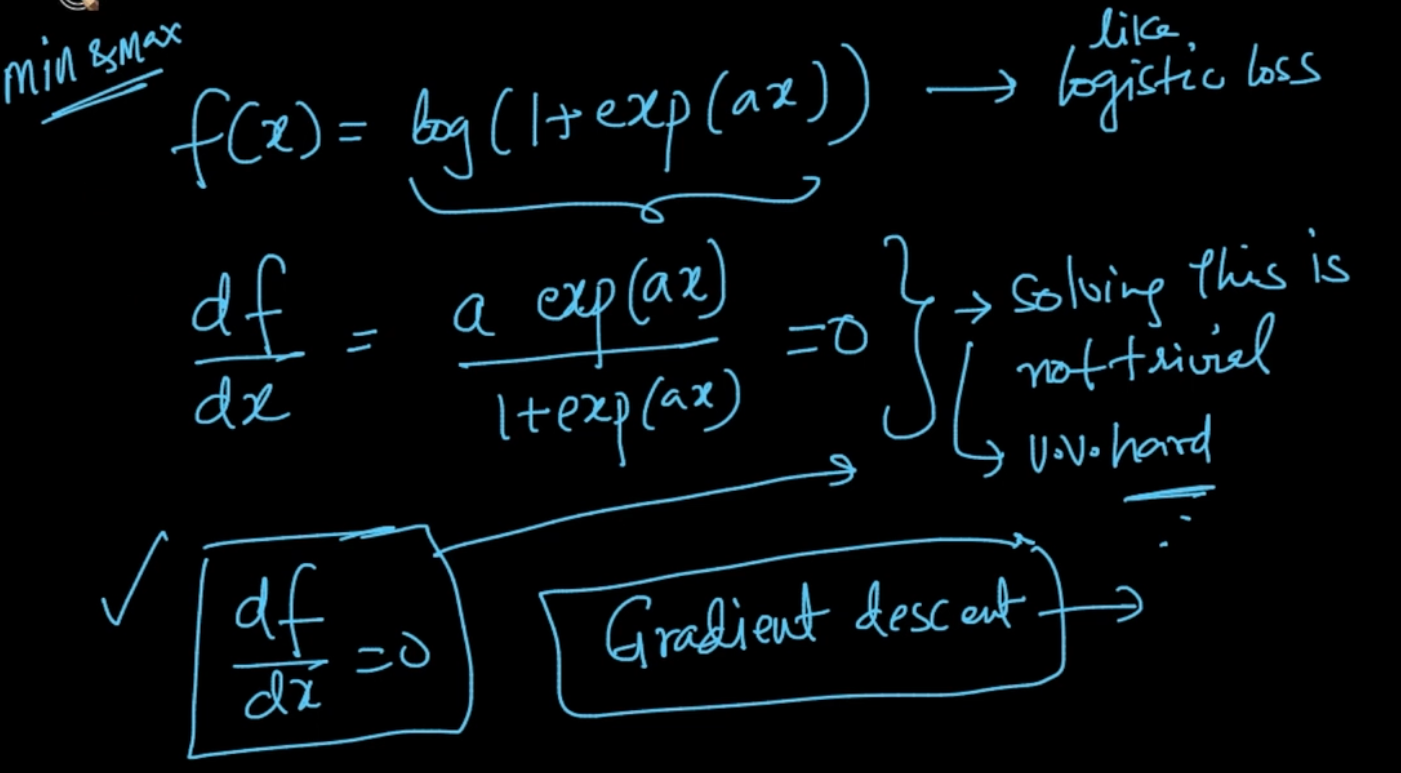 min & max
f(x) = log(1+exp(ax)) → like logistic loss
df/dx = a exp(ax) / 1+exp(ax) = 0 } → solving this is not trivial
↳ v.v. hard
✓ df/dx = 0
Gradient descent →